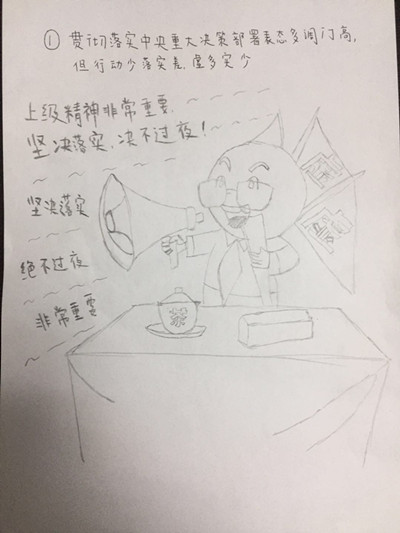 ① 贯彻落实中央重大决策部署表态多调门高,
但行动少落实差,虚多实少
上级精神非常重要.
坚决落实,决不过夜!
坚决落实
绝不过夜
非常重要
茶